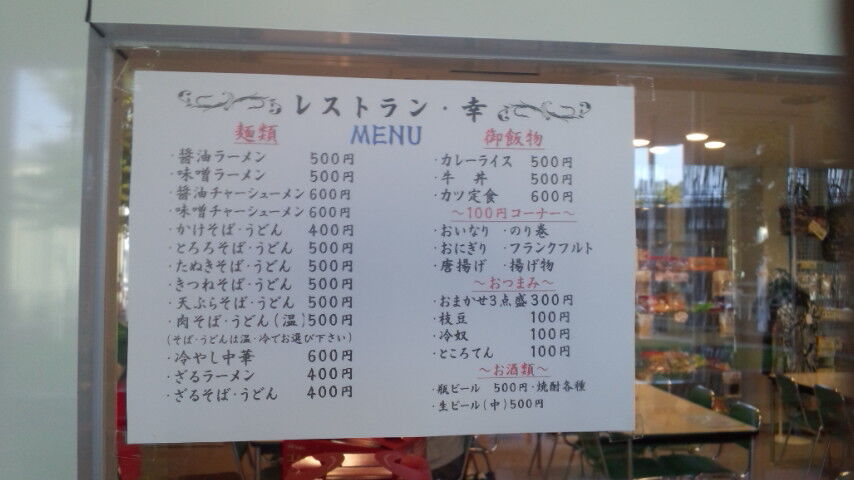 レストラン・幸
MENU
麺類
・醤油ラーメン 500円
・味噌ラーメン 500円
・醤油チャーシューメン 600円
・味噌チャーシューメン 600円
・かけそば・うどん 400円
・とろろそば・うどん 500円
・たぬきそば・うどん 500円
・きつねそば・うどん 500円
・天ぷらそば・うどん 500円
・肉そば・うどん(温) 500円
(そば・うどんは温・冷でお選び下さい)
・冷やし中華 600円
・ざるラーメン 400円
・ざるそば・うどん 400円
御飯物
・カレーライス 500円
・牛 丼 500円
・カツ定食 600円
〜100円コーナー〜
・おいなり ・のり巻
・おにぎり ・フランクフルト
・唐揚げ ・揚げ物
〜おつまみ〜
・おまかせ3点盛 300円
・枝豆 100円
・冷奴 100円
・ところてん 100円
〜お酒類〜
・瓶ビール 500円・焼酎各種
・生ビール(中)500円